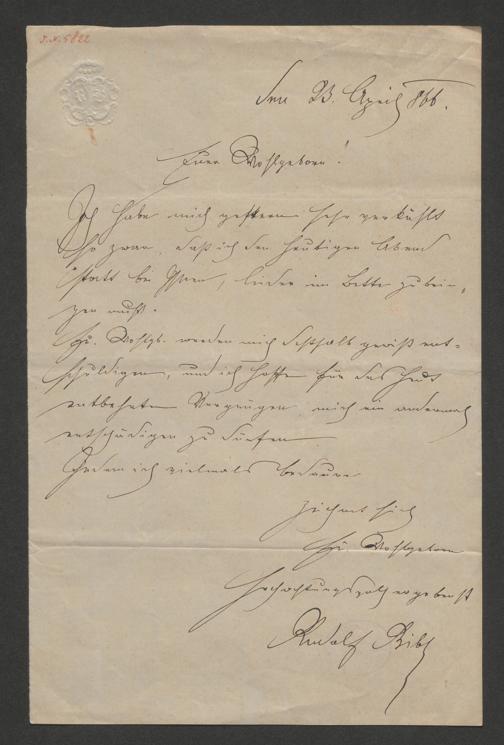 J.N. 5822
den 23. April 866.
Euer Wohlgeboren!
Ich habe mich gestern sehr verkühlt
so zwar, daß ich den heutigen Abend
statt bei Ihnen, leider im Bette zubrin-
gen muß.
Eu. Wohlgb. werden mich deßhalb gewiß ent-
schuldigen, und ich hoffe für das heut
entbehrte Vergnügen mich ein andermal
entschädigen zu dürfen.
Indem ich vielmals bedaure
zeichnet sich
Eu. Wohlgeboren
hochachtungsvoll ergebenst
Rudolf Bibl